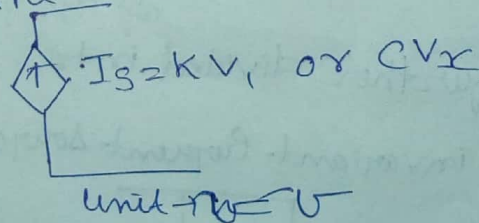 Is = KV, or CVx
Unit-